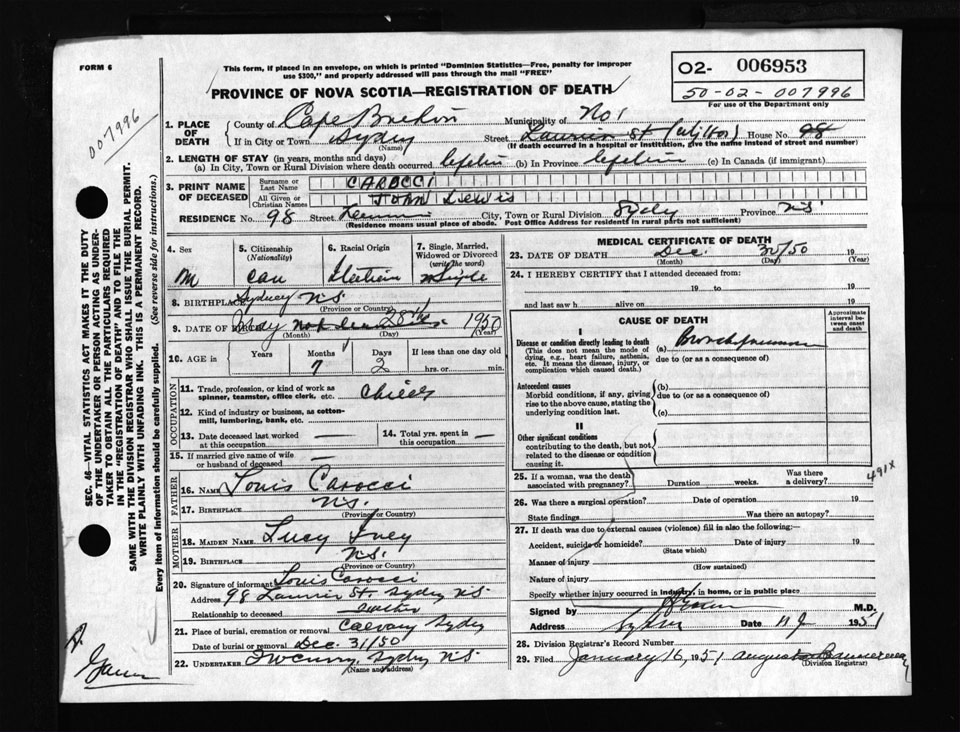 FORM 6
This form, if placed in an envelope, on which is printed "Dominion Statistics—Free, penalty for improper
use $300," and properly addressed will pass through the mail "FREE"
PROVINCE OF NOVA SCOTIA—REGISTRATION OF DEATH
O2- 006953
50-02-007996
For use of the Department only
007996
1. PLACE OF DEATH
County of Cape Breton Municipality of No 1
If in City or Town Sydney Street Laurier St House No. 98
(Name) (If death occurred in a hospital or institution, give the name instead of street and number)
2. LENGTH OF STAY (in years, months and days)
(a) In City, Town or Rural Division where death occurred lifetime (b) In Province lifetime (c) In Canada (if immigrant)
3. PRINT NAME OF DECEASED
Surname or Last Name CAROCCI
All Given or Christian Names JOHN Lewis
RESIDENCE No. 98 Street City, Town or Rural Division Sydney Province NS
(Residence means usual place of abode. Post Office Address for residents in rural parts not sufficient)
4. Sex M
5. Citizenship (Nationality) Can
6. Racial Origin
7. Single, Married, Widowed or Divorced (write the word) Single
8. BIRTHPLACE Sydney N.S.
(Province or Country)
9. DATE OF BIRTH 28th 1950
(Month) (Day) (Year)
10. AGE in Years Months 7 Days 2 If less than one day old hrs. or min.
OCCUPATION
11. Trade, profession, or kind of work as spinner, teamster, office clerk, etc. Child
12. Kind of industry or business, as cotton-mill, lumbering, bank, etc.
13. Date deceased last worked at this occupation —
14. Total yrs. spent in this occupation —
15. If married give name of wife or husband of deceased —
FATHER
16. NAME Louis Carocci
17. BIRTHPLACE N.S.
(Province or Country)
MOTHER
18. MAIDEN NAME Lucy
19. BIRTHPLACE N.S.
(Province or Country)
20. Signature of informant Louis Carocci
Address 98 Laurier St. Sydney N.S
Relationship to deceased
21. Place of burial, cremation or removal Calvary Sydney
Date of burial or removal Dec. 31/50
22. UNDERTAKER Sydney N.S
(Name and address)
MEDICAL CERTIFICATE OF DEATH
23. DATE OF DEATH Dec. 30/50 19
(Month) (Day) (Year)
24. I HEREBY CERTIFY that I attended deceased from
19 to 19
and last saw h alive on 19
CAUSE OF DEATH
Approximate interval between onset and death
I
Disease or condition directly leading to death (a) Bronchopneumonia
(This does not mean the mode of dying, e.g., heart failure, asthenia, etc. It means the disease, injury, or complication which caused death.)
due to (or as a consequence of)
Antecedent causes (b)
Morbid conditions, if any, giving rise to the above cause, stating the underlying condition last.
due to (or as a consequence of)
(c)
II
Other significant conditions
contributing to the death, but not related to the disease or condition causing it.
491X
25. If a woman, was the death associated with pregnancy? Duration weeks. Was there a delivery?
26. Was there a surgical operation? Date of operation 19
State findings Was there an autopsy?
27. If death was due to external causes (violence) fill in also the following:—
Accident, suicide or homicide? Date of injury 19
(State which)
Manner of injury
(How sustained)
Nature of injury
Specify whether injury occurred in industry, in home, or in public place
Signed by M.D.
Address Sydney Date 1951
28. Division Registrar's Record Number
29. Filed January 16, 1951
(Division Registrar)
SEC. 46—VITAL STATISTICS ACT MAKES IT THE DUTY
OF THE UNDERTAKER OR PERSON ACTING AS UNDER-
TAKER TO OBTAIN ALL THE PARTICULARS REQUIRED
IN THE "REGISTRATION OF DEATH" AND TO FILE THE
SAME WITH THE DIVISION REGISTRAR WHO SHALL ISSUE THE BURIAL PERMIT.
WRITE PLAINLY WITH UNFADING INK. THIS IS A PERMANENT RECORD.
Every item of information should be carefully supplied. (See reverse side for instructions.)